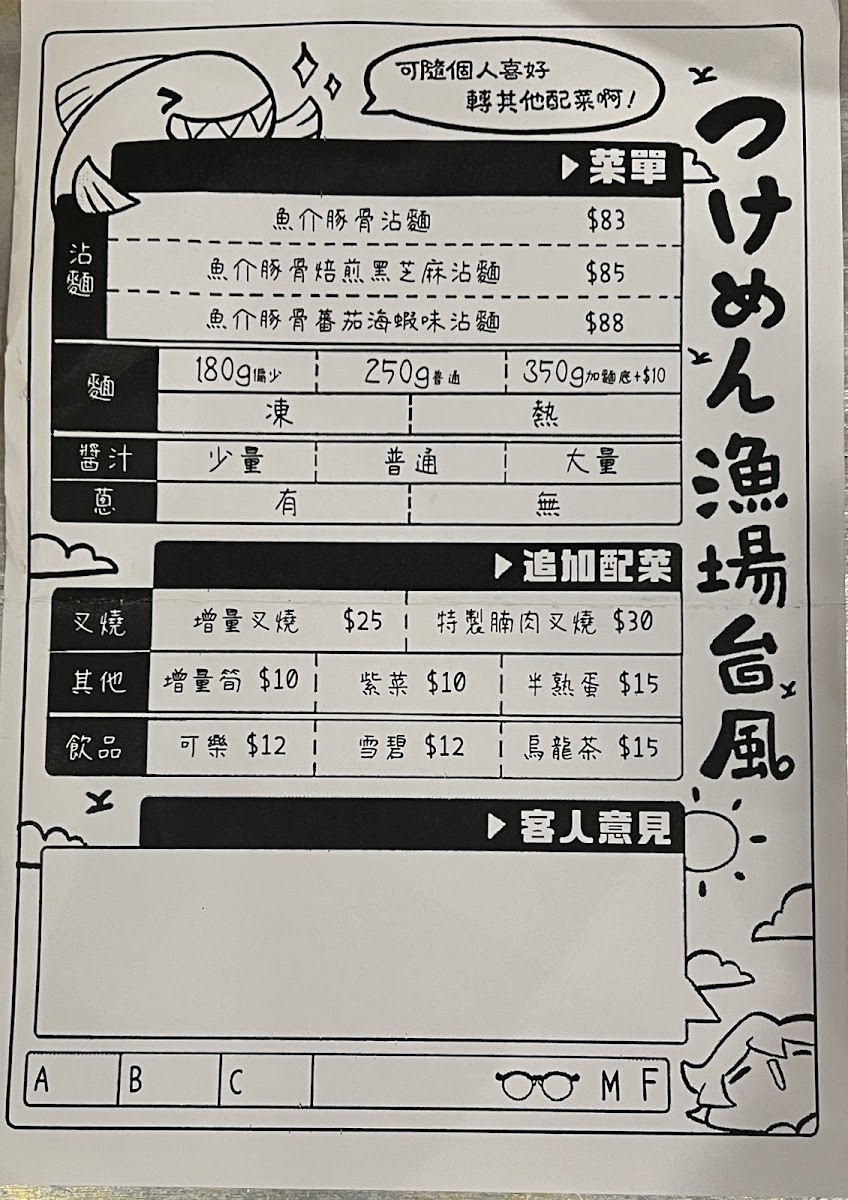 可隨個人喜好
轉其他配菜啊!
つけめん漁場台風
菜單
沾麵
魚介豚骨沾麵 $83
魚介豚骨焙煎黑芝麻沾麵 $85
魚介豚骨蕃茄海蝦味沾麵 $88
麵
180g偏少 250g普通 350g加麵底+$10
凍 熱
醬汁 少量 普通 大量
蔥 有 無
追加配菜
叉燒 增量叉燒 $25 特製腩肉叉燒 $30
其他 增量筍 $10 紫菜 $10 半熟蛋 $15
飲品 可樂 $12 雪碧 $12 烏龍茶 $15
客人意見
A B C M F